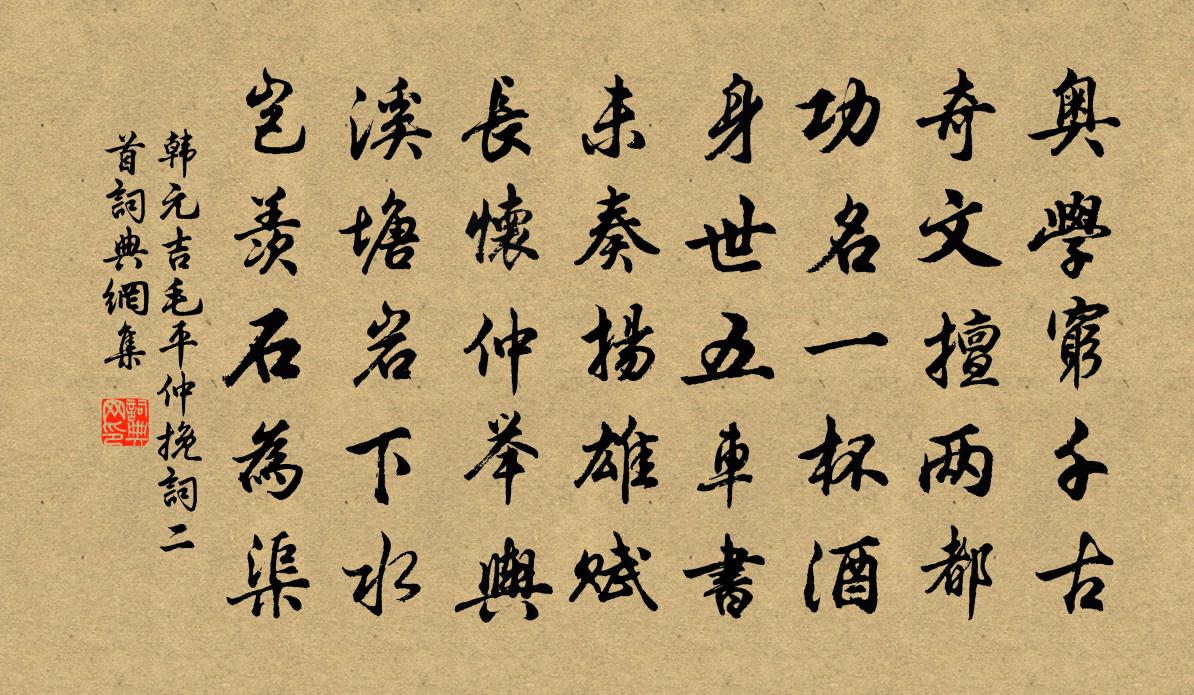 奥學窮千古
奇文擅两都
功名一杯酒
身世五車書
未奏揚雄賦
長懷仲举輿
溪塘岩下水
岂羡石為渠
韩元吉毛平仲挽詞二
首詞典網集
詞典网印